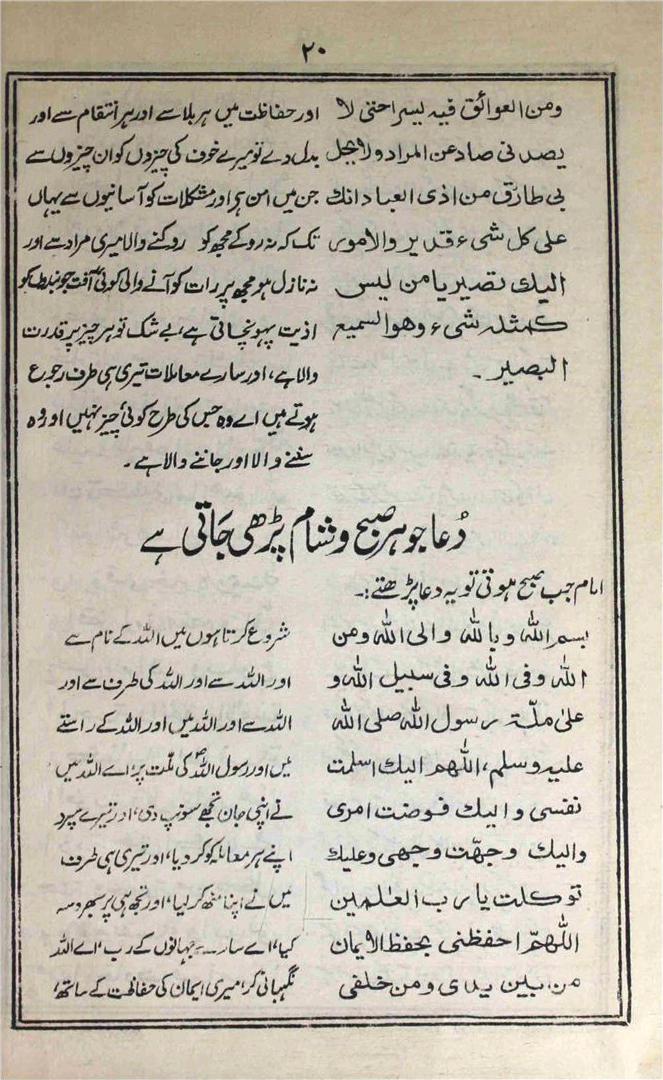 ۲۰
ومن العوائق فيه يسرا حتى لا
يصدنى صاد عن المراد ولا يحل
بى طارق من اذى العباد انك
على كل شىء قدير والامور
اليك تصير يا من ليس
كمثله شىء وهو السميع
البصير۔
اور حفاظت میں ہر بلا سے اور ہر انتقام سے اور
بدل دے تو میرے خوف کی چیزوں کو ان چیزوں سے
جن میں امن ہو اور مشکلات کو آسانیوں سے یہاں
تک کہ نہ روکے مجھ کو روکنے والا میری مراد سے اور
نہ نازل ہو مجھ پر رات کو آنے والی کوئی آفت جو
اذیت پہونچاتی ہے، بے شک تو ہر چیز پر قدرت
والا ہے، اور سارے معاملات تیری ہی طرف رجوع
ہوتے ہیں اے وہ جس کی طرح کوئی چیز نہیں اور وہ
سننے والا اور جاننے والا ہے۔
دُعا جو ہر صبح و شام پڑھی جاتی ہے
امام جب صبح ہوتی تو یہ دعا پڑھتے:۔
بسم الله وبا لله والى الله ومن
الله وفى الله وفى سبيل الله و
على ملّة رسول الله صلى الله
عليه وسلم، اللهم اليك اسلمت
نفسى واليك فوضت امرى
واليك وجهّت وجهى وعليك
توكلت يا رب العلمين
اللهمّ احفظنى بحفظ الايمان
من بين يدى ومن خلفى
شروع کرتا ہوں میں اللہ کے نام سے
اور اللہ سے اور اللہ کی طرف سے اور
اللہ سے اور اللہ میں اور اللہ کے راستے
میں اور رسول اللہؐ کی ملّت پر، اے اللہ میں
نے اپنی جان تجھے سونپ دی، اور تیرے سپرد
اپنے ہر معاملہ کو کر دیا، اور تیری ہی طرف
میں نے اپنا منھ کر لیا، اور تجھ ہی پر بھروسہ
کیا، اے سارے جہانوں کے رب، اے اللہ
نگہبانی کر، میری ایمان کی حفاظت کے ساتھ،